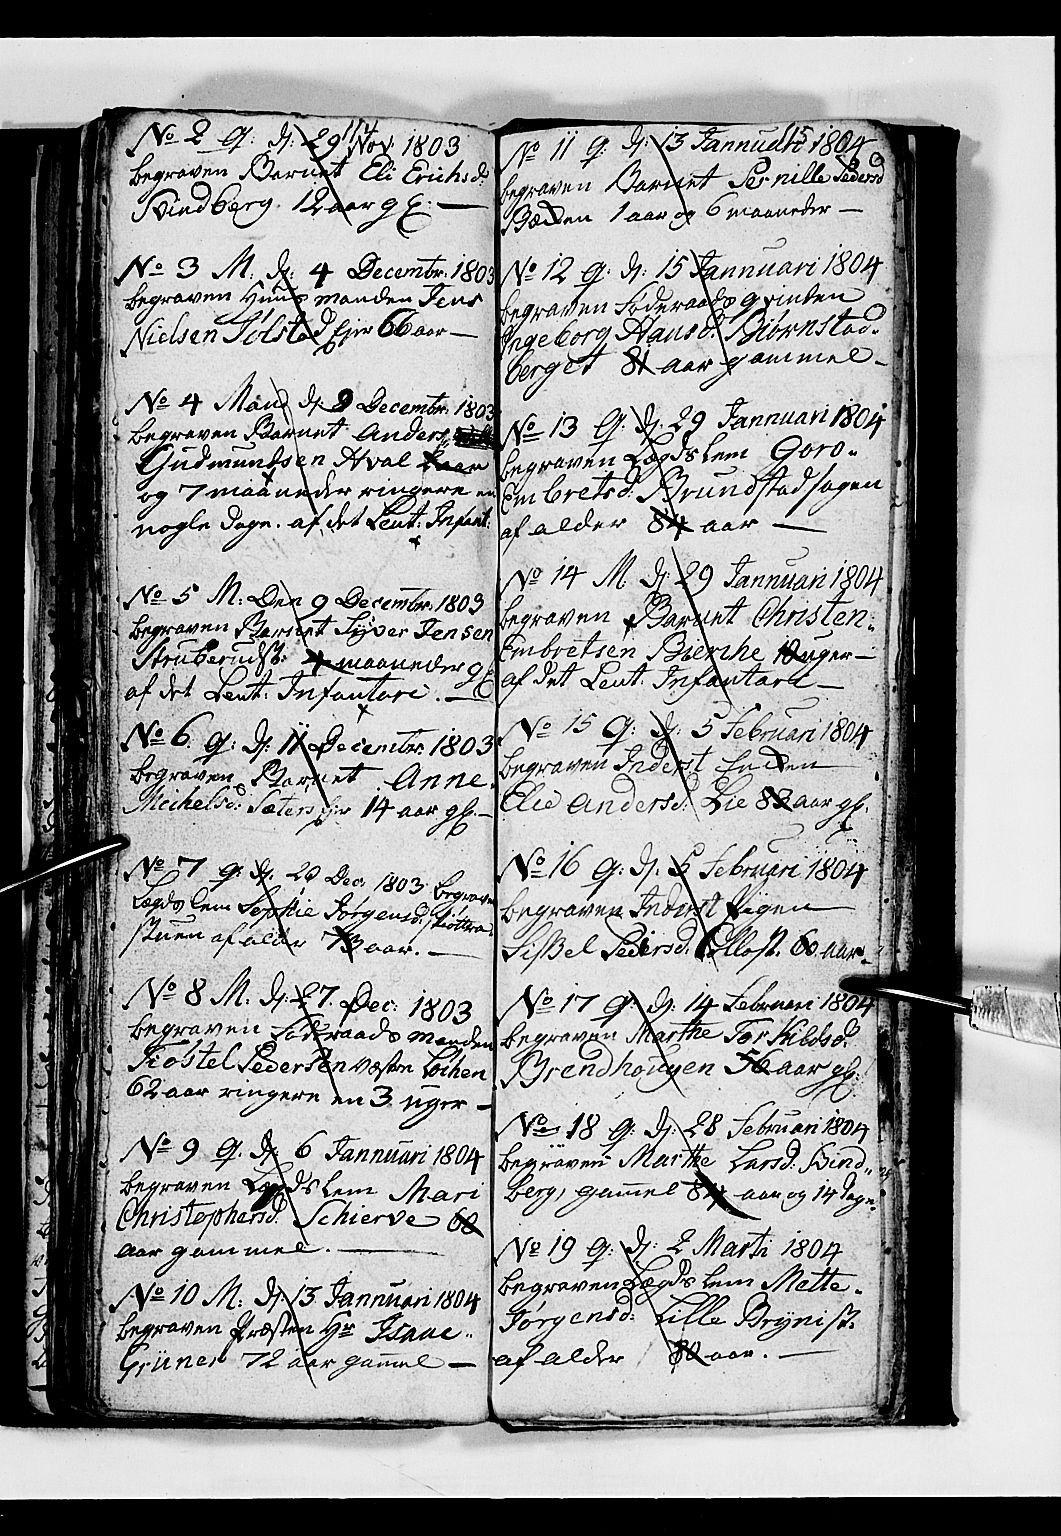 No 2 q: d: 29 Nov: 1803
begraven Barnet Eli Erichsd:
Svindberg. 12 aar gl: —
No 3 M: d: 4 Decembr: 1803
begraven Huusmanden Jens
Nielsen Tolstad Ejer 66 aar —
No 4 Man d: 9 Decembr: 1803
begraven Barnet Anders
Gudmundsen Hval 2 aar
og 7 maaneder ringere en
nogle dage. af det Leut: Infant:
No 5 M: Den 9 Decembr: 1803
begraven Barnet Syver Jensen
Struberudst: 4 maaneder gl
af det Leut: Infantari. —
No 6 q: d: 11 Decembr 1803
begraven Barnet Anne
Michelsd: Sæters Ejer 14 aar gl. —
No 7 q: d: 20 Dec: 1803 begraven
Lægdslem Sophie Jørgensd:
stuen af alder 73 aar. —
No 8 M: d: 27. Dec: 1803
begraven Føderaadsmanden
Kiøstel Pedersen væstre Lochen
62 aar ringere en 3 uger —
No 9 q. d: 6 Jannuari 1804
begraven Lægdslem Mari
Christophersd: Schierve 60
aar gammel. —
No 10 M: d: 13 Jannuari 1804
begraven Præsten Hr Isaac
Grüner 72 aar gamel —
No 11 q: d: 13 Jannuari 1804
begraven Barnet Pernille Pedersd
1 aar og 6 maaneder —
No 12 q: d: 15 Jannuari 1804
begraven Føderaads qvinden
Ingeborg Hansd: Biørnstad-
berget 81 aar gammel —
No 13 q: d: 29 Jannuari 1804
begraven Lægdslem Goro
Embretsd: Brundstadhagen
af alder 84 aar —
No 14 M: d: 29 Jannuari 1804
begraven Barnet Christen
Embretsen Bierche 10 uger —
af det Leut: Infantari —
No 15 q: d: 5 Februari 1804
begraven Inderst Enken
Elie Andersd: Lie 83 aar gl.
No 16 q: d: 5 Februari 1804
begraven Inderst Pigen
Sißel Pedersd: Ellost: 60 aar —
No 17 q: d: 14 Februari 1804
begraven Marthe Torkildsd:
Brendhougen 56 aar gl:
No 18 q: d: 28 Februari 1804
begraven Marthe Larsd: Svind-
berg, gamel 84 aar og 14 dage.
No 19 q: d: 2 Marti 1804
begraven Lægdslem Mette
Jørgensd: Lille Brynist:
af alder 80 aar. —